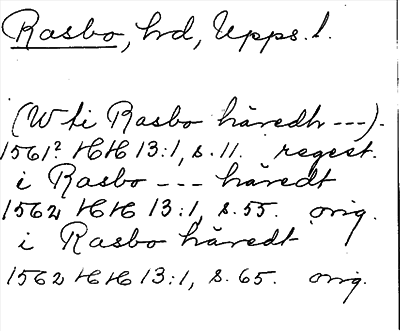 Rasbo, hd, Upps. l.
(W ti Rasbo häredh ---).
1561? HH 13:1, s. 11. regest.
i Rasbo --- häredt
1562 HH 13:1, s. 55. orig.
i Rasbo häredt
1562 HH 13:1, s. 65. orig.